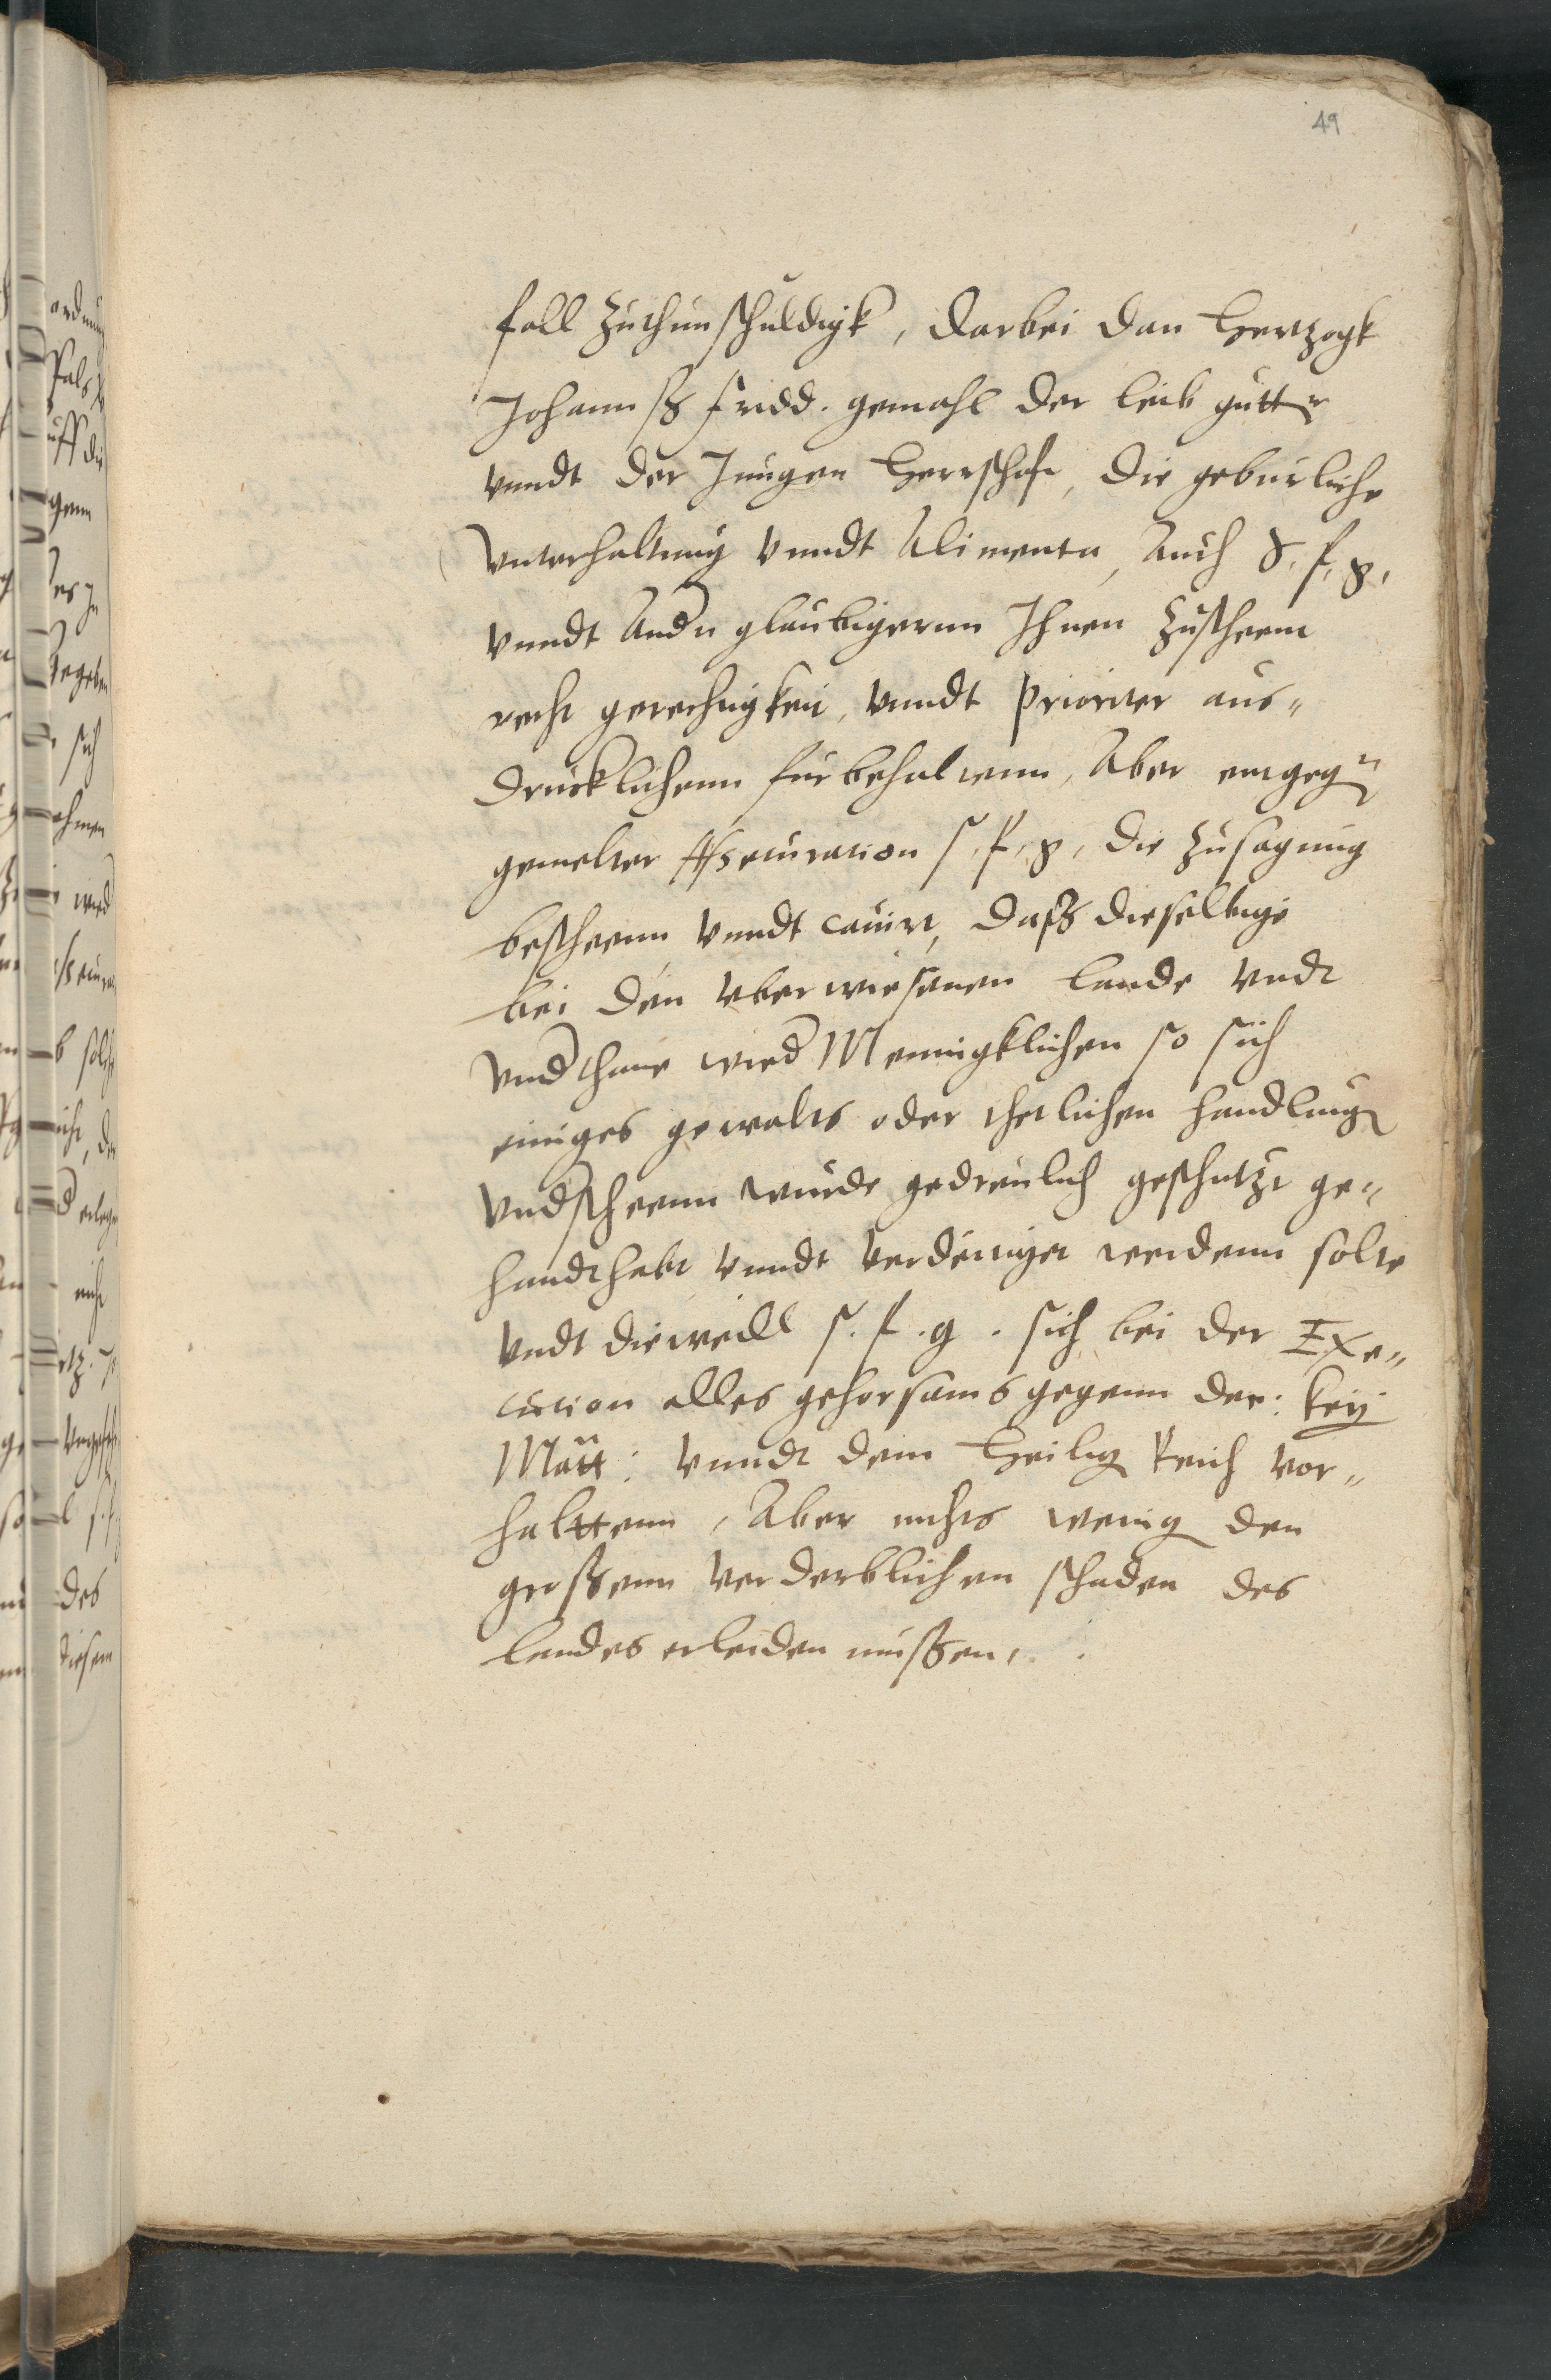 49
fall zuthun schuldigk, darbei dan Hertzogk
Johannß Fridd. gemahl der leib gutter
vnndt der Jungen Herrschafft, die geburliche
Vnterhaltung vnndt Alimenta, Auch S. f. g.
vnndt Andn glaubigernn Ihnen zustheenn
recht gerechtigkeit, vnndt prioritet aus„
drucklichenn furbehaltenn, Aber entgegn
gemelter Assecuration S. f. g. die zusagung
bescheenn vnndt cauirt, daß dieselbige
bei den vberwiesenen lande vndt
vnderthane wieder Mennigklichen so sich
einiges gewalts oder thetlichen handlung
vnderstheenn wurde gedreulich geschutzt ge„
handthabt vnndt verdeitiget werdenn solte
vndt dieweill s. f. g. sich bei der Exe„
cution alles gehorsams gegenn der: key
Matt: vnndt dem Heilig Reich vor„
halttenn, Aber nichts wenig den
großenn verderblichen schaden des
landes erleiden mußen.